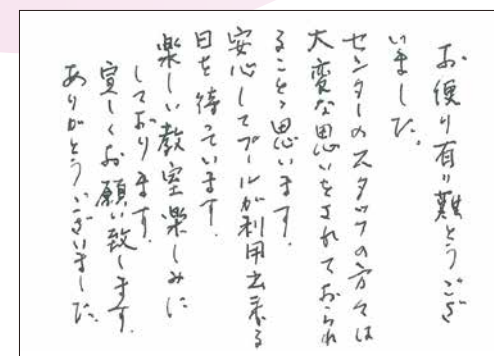 お便り有り難とうござ
いました。
センターのスタッフの方々は
大変な思いをされておられ
ることと思います。
安心してプールが利用出来る
日を待っています。
楽しい教室楽しみに
しております。
宜しくお願い致します。
ありがとうございました。